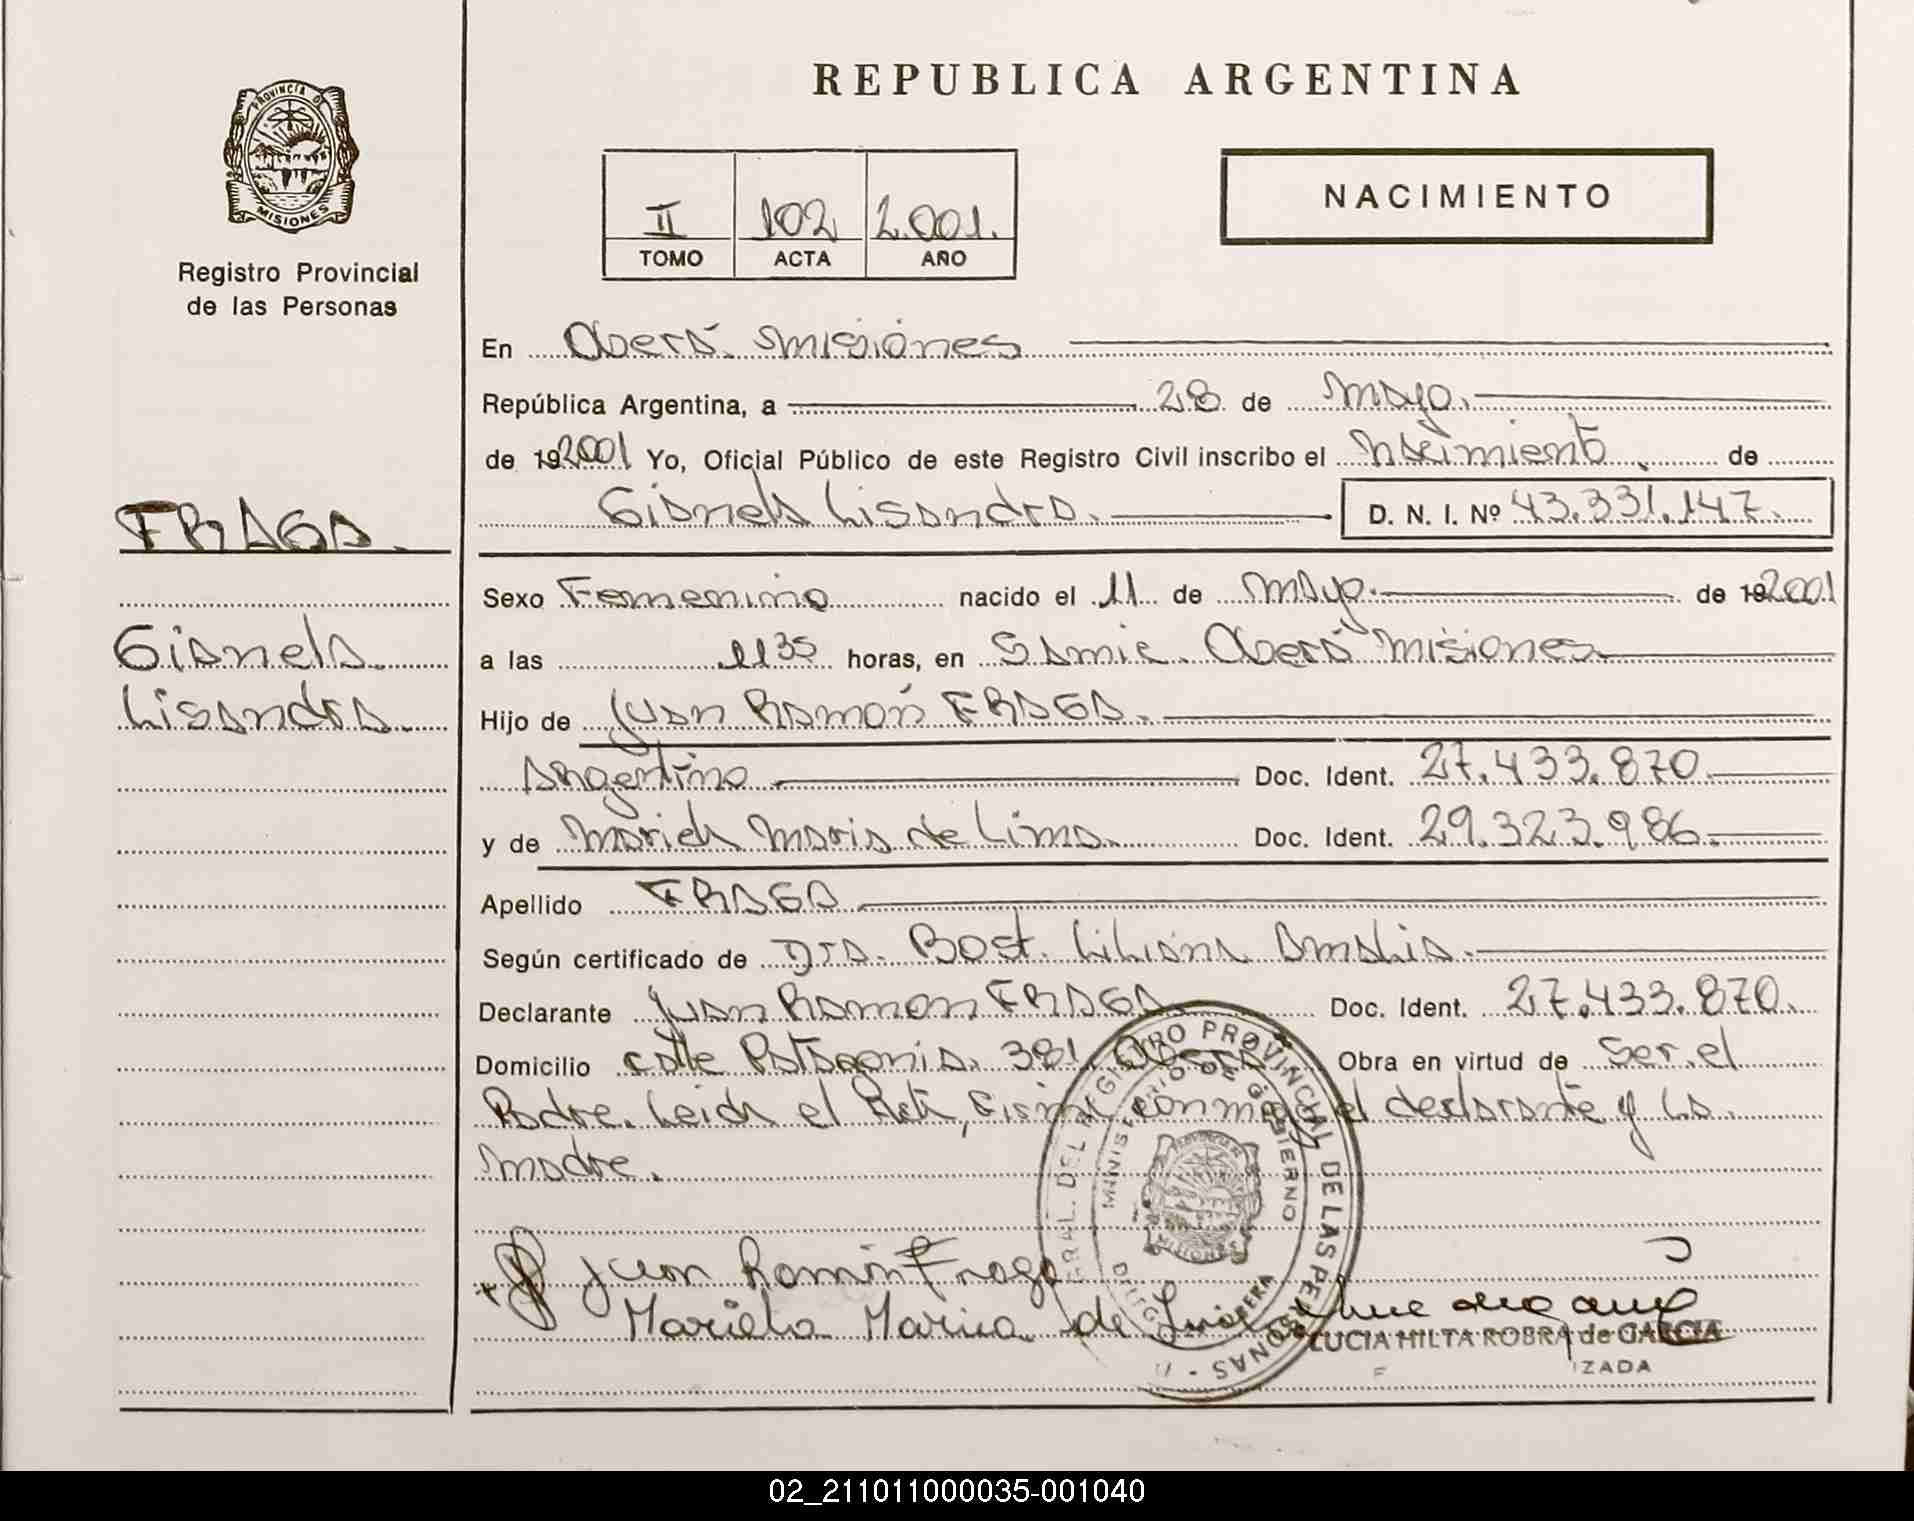 REPUBLICA ARGENTINA
PROVINCIA DE
MISIONES
Registro Provincial
de las Personas
II 102 2.001.
TOMO ACTA AÑO
NACIMIENTO
En Oberá Misiones
República Argentina, a 28 de Mayo.
de 192001 Yo, Oficial Público de este Registro Civil inscribo el Nacimiento de
Gianela Lisandra. D. N. I. Nº 43.331.147.
FRAGA.
Gianela
Lisandra.
Sexo Femenino nacido el 11 de Mayo. de 192001
a las 11 35 horas, en Samic. Oberá Misiones.
Hijo de Juan Ramón FRAGA.
Argentino Doc. Ident. 27.433.870.
y de Mariela Maria de Lima. Doc. Ident. 29.323.986.
Apellido FRAGA
Según certificado de Dra. Bost. Liliana Amalia.
Declarante Juan Ramon FRAGA Doc. Ident. 27.433.870.
Domicilio calle Patagonia. 381. Oberá Obra en virtud de Ser el
Padre. Leida el Acta, Firma conmigo el declarante y la
Madre.
Juan Ramón Fraga
Mariela Marica de Lima
GRAL. DEL REGISTRO PROVINCIAL DE LAS PERSONAS
MINISTERIO DE GOBIERNO
MISIONES
LUCIA HILTA ROBRA de GARCIA
IZADA
02_211011000035-001040